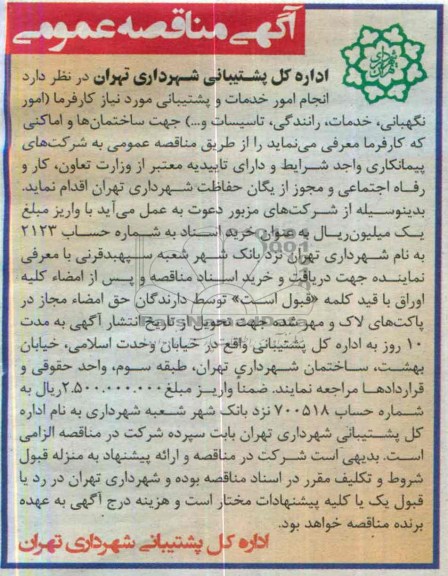 آگهی مناقصه عمومی
اداره کل پشتیبانی شهرداری تهران در نظر دارد
انجام امور خدمات و پشتیبانی مورد نیاز کارفرما (امور
نگهبانی، خدمات، رانندگی، تاسیسات و...) جهت ساختمان‌ها و اماکنی
که کارفرما معرفی می‌نماید را از طریق مناقصه عمومی به شرکت‌های
پیمانکاری واجد شرایط و دارای تاییدیه معتبر از وزارت تعاون، کار و
رفاه اجتماعی و مجوز از یگان حفاظت شهرداری تهران اقدام نماید.
بدینوسیله از شرکت‌های مزبور دعوت به عمل می‌آید با واریز مبلغ
یک میلیون ریال به عنوان خرید اسناد به شماره حساب ۲۱۲۳
به نام شهرداری تهران نزد بانک شهر شعبه سپهبدقرنی با معرفی
نماینده جهت دریافت و خرید اسناد مناقصه و پس از امضاء کلیه
اوراق با قید کلمه «قبول است» توسط دارندگان حق امضاء مجاز در
پاکت‌های لاک و مهر شده جهت تحویل از تاریخ انتشار آگهی به مدت
۱۰ روز به اداره کل پشتیبانی واقع در خیابان وحدت اسلامی، خیابان
بهشت، ساختمان شهرداری تهران، طبقه سوم، واحد حقوقی و
قراردادها مراجعه نمایند. ضمنا واریز مبلغ ۲.۵۰۰.۰۰۰.۰۰۰ ریال به
شماره حساب ۷۰۰۵۱۸ نزد بانک شهر شعبه شهرداری به نام اداره
کل پشتیبانی شهرداری تهران بابت سپرده شرکت در مناقصه الزامی
است. بدیهی است شرکت در مناقصه و ارائه پیشنهاد به منزله قبول
شروط و تکلیف مقرر در اسناد مناقصه بوده و شهرداری تهران در رد یا
قبول یک یا کلیه پیشنهادات مختار است و هزینه درج آگهی به عهده
برنده مناقصه خواهد بود.
اداره کل پشتیبانی شهرداری تهران